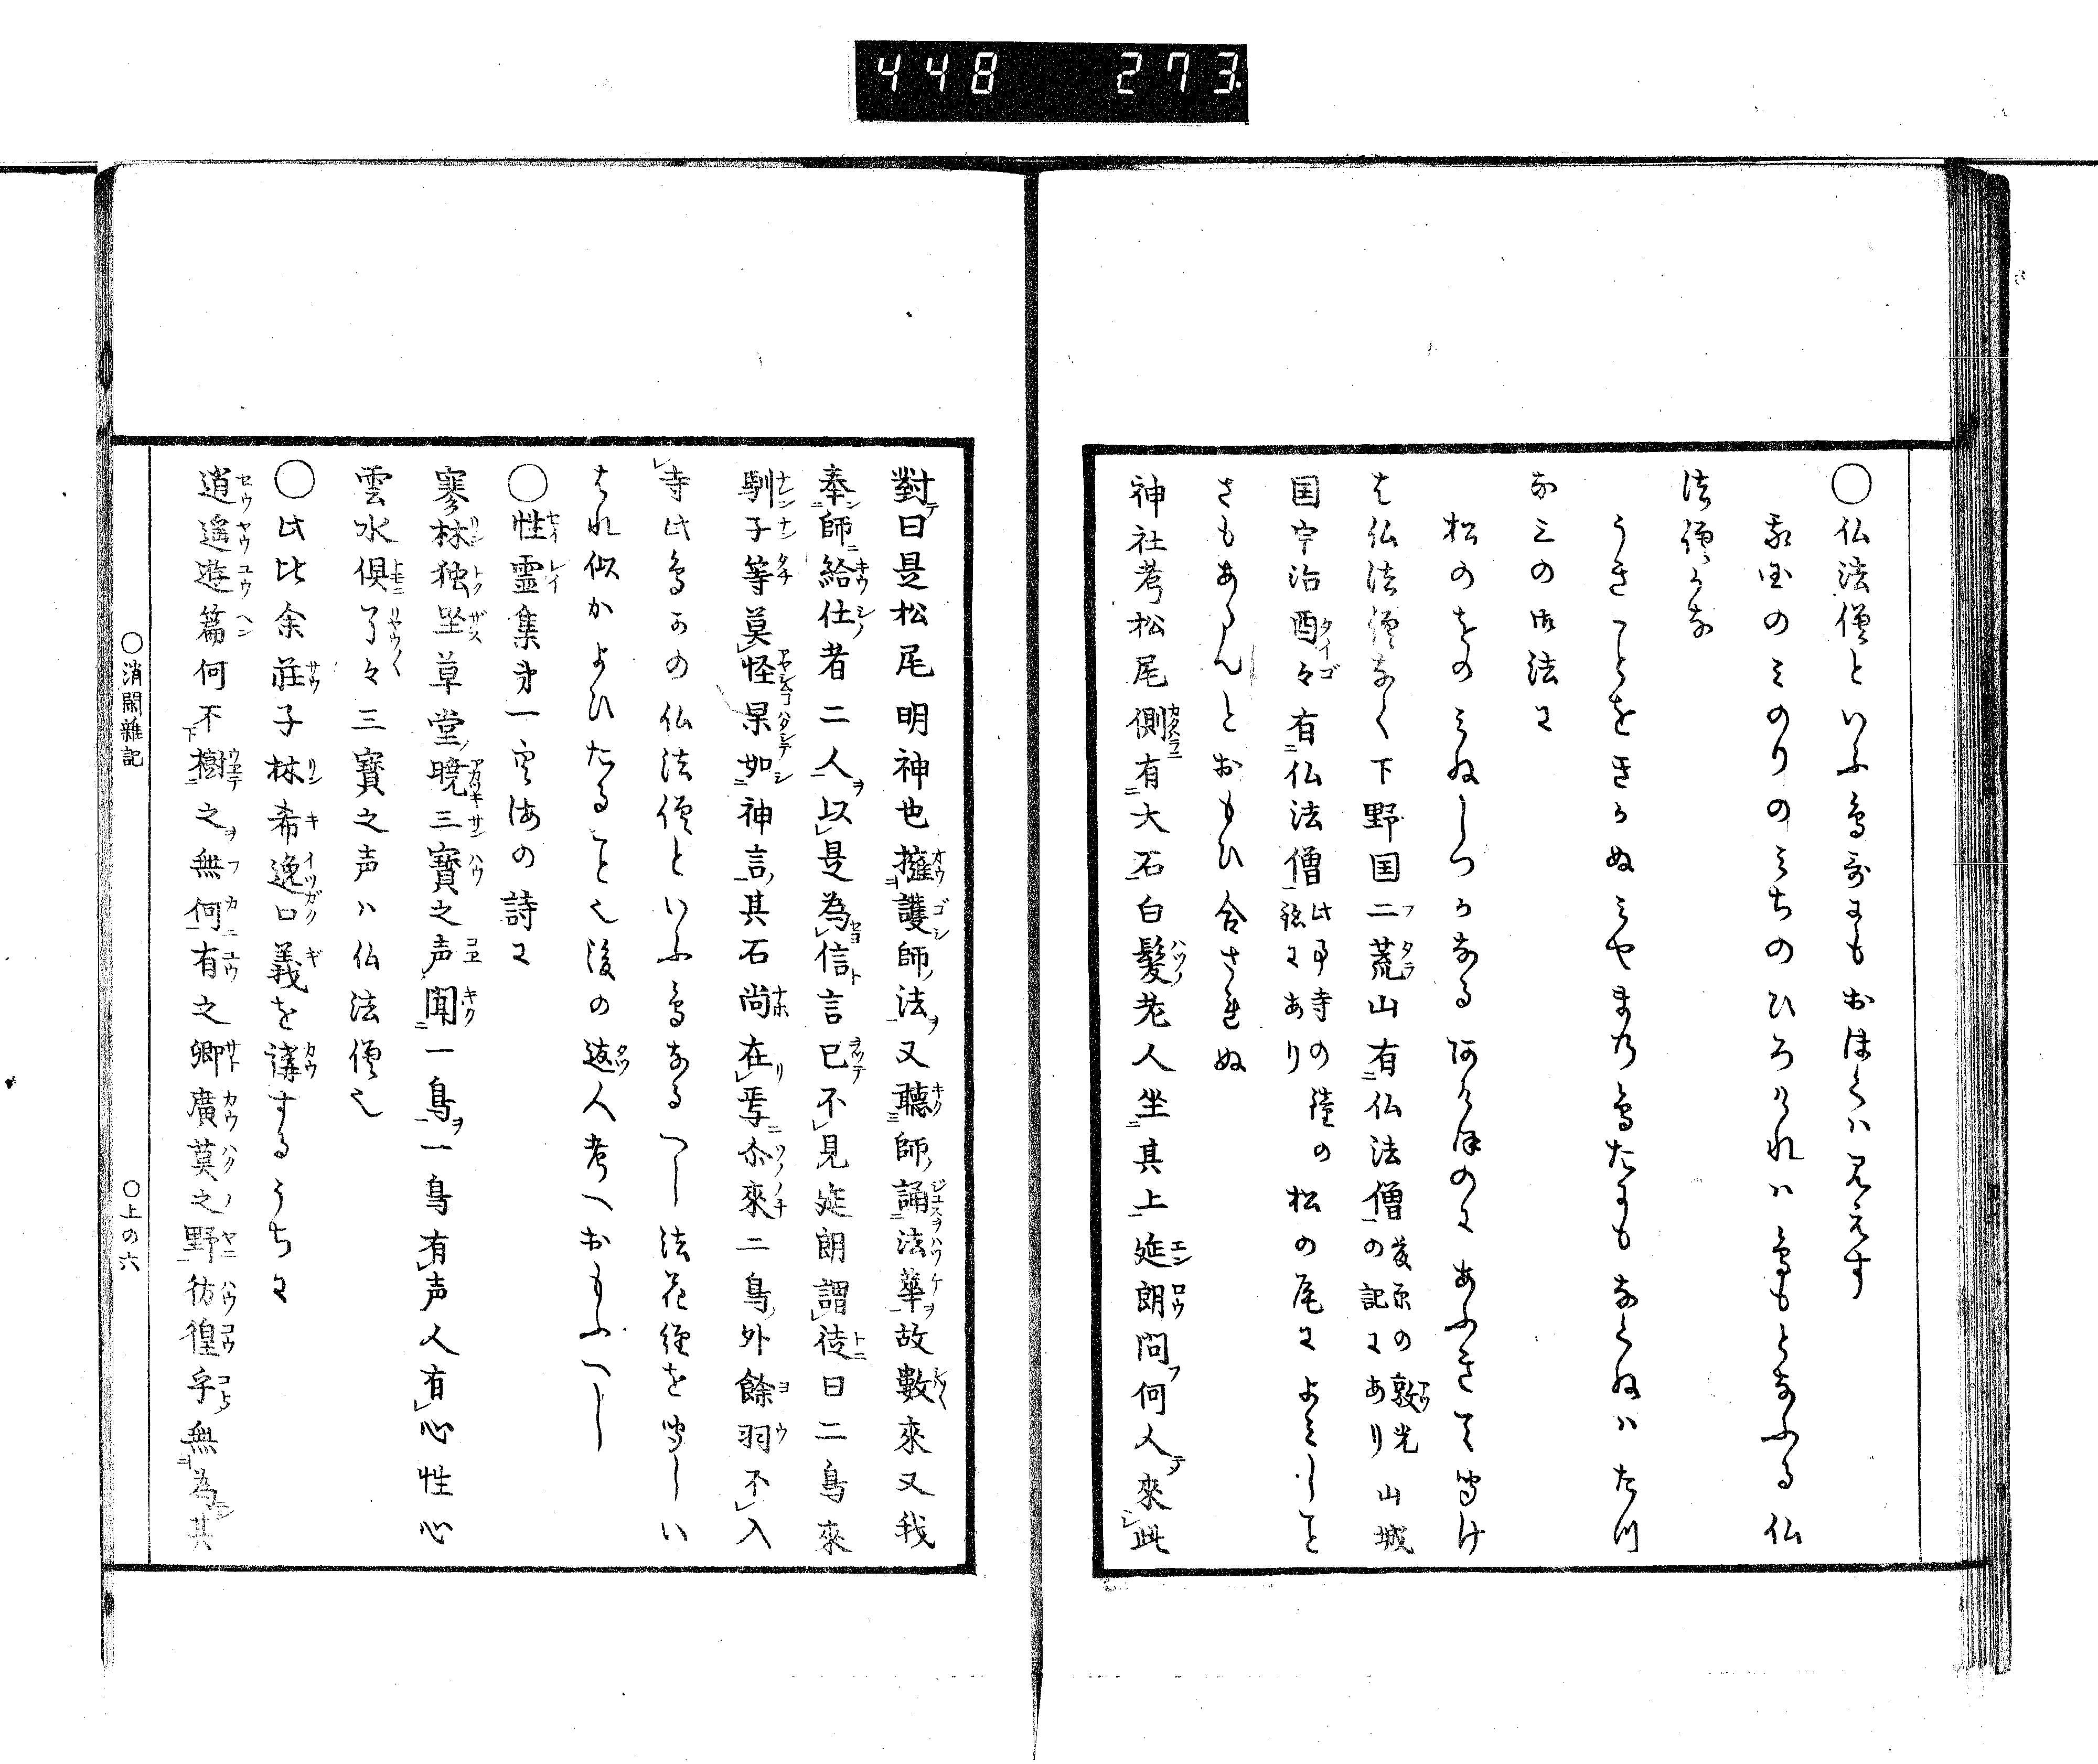 448 273
○仏法僧といふ鳥哥にもおほくハ見えす
我国のミのりのミちのひろけれハ鳥もとなふる仏
法僧かな
うきことをきかぬミやまの鳥たにもなくねハたつ
なミの御法に
松のをのミねしつかなるあけほのにあふきて聞け
は仏法僧なく下野国二荒山有仏法僧の記にあり山城
国宇治醍々有仏法僧此事寺の隆の松の尾によミしこと
さもあらんとおもひ合されぬ
神社考松尾側有大石白髪老人坐其上延朗問何人來此
對曰是松尾明神也擁護師法又聽師誦法華故數來又我
奉師給仕者二人以是為信言已不見延朗謂徒曰二鳥來
馴子等莫怪果如神言其石尚在焉尒來二鳥外餘羽不入
寺此鳥かの仏法僧といふ鳥なるへし法花経を聞しハ
はれ似かよひたること也後の達人考へおもふへし
○性霊集第一空海の詩に
寒林独坐草堂暁三寶之声聞一鳥一鳥有声人有心性心
雲水倶了々三寶之声ハ仏法僧也
○此比余荘子林希逸口義を講するうちに
逍遥遊篇何不樹之無何有之卿廣莫之野彷徨乎無為其
○消閑雑記
○上の六